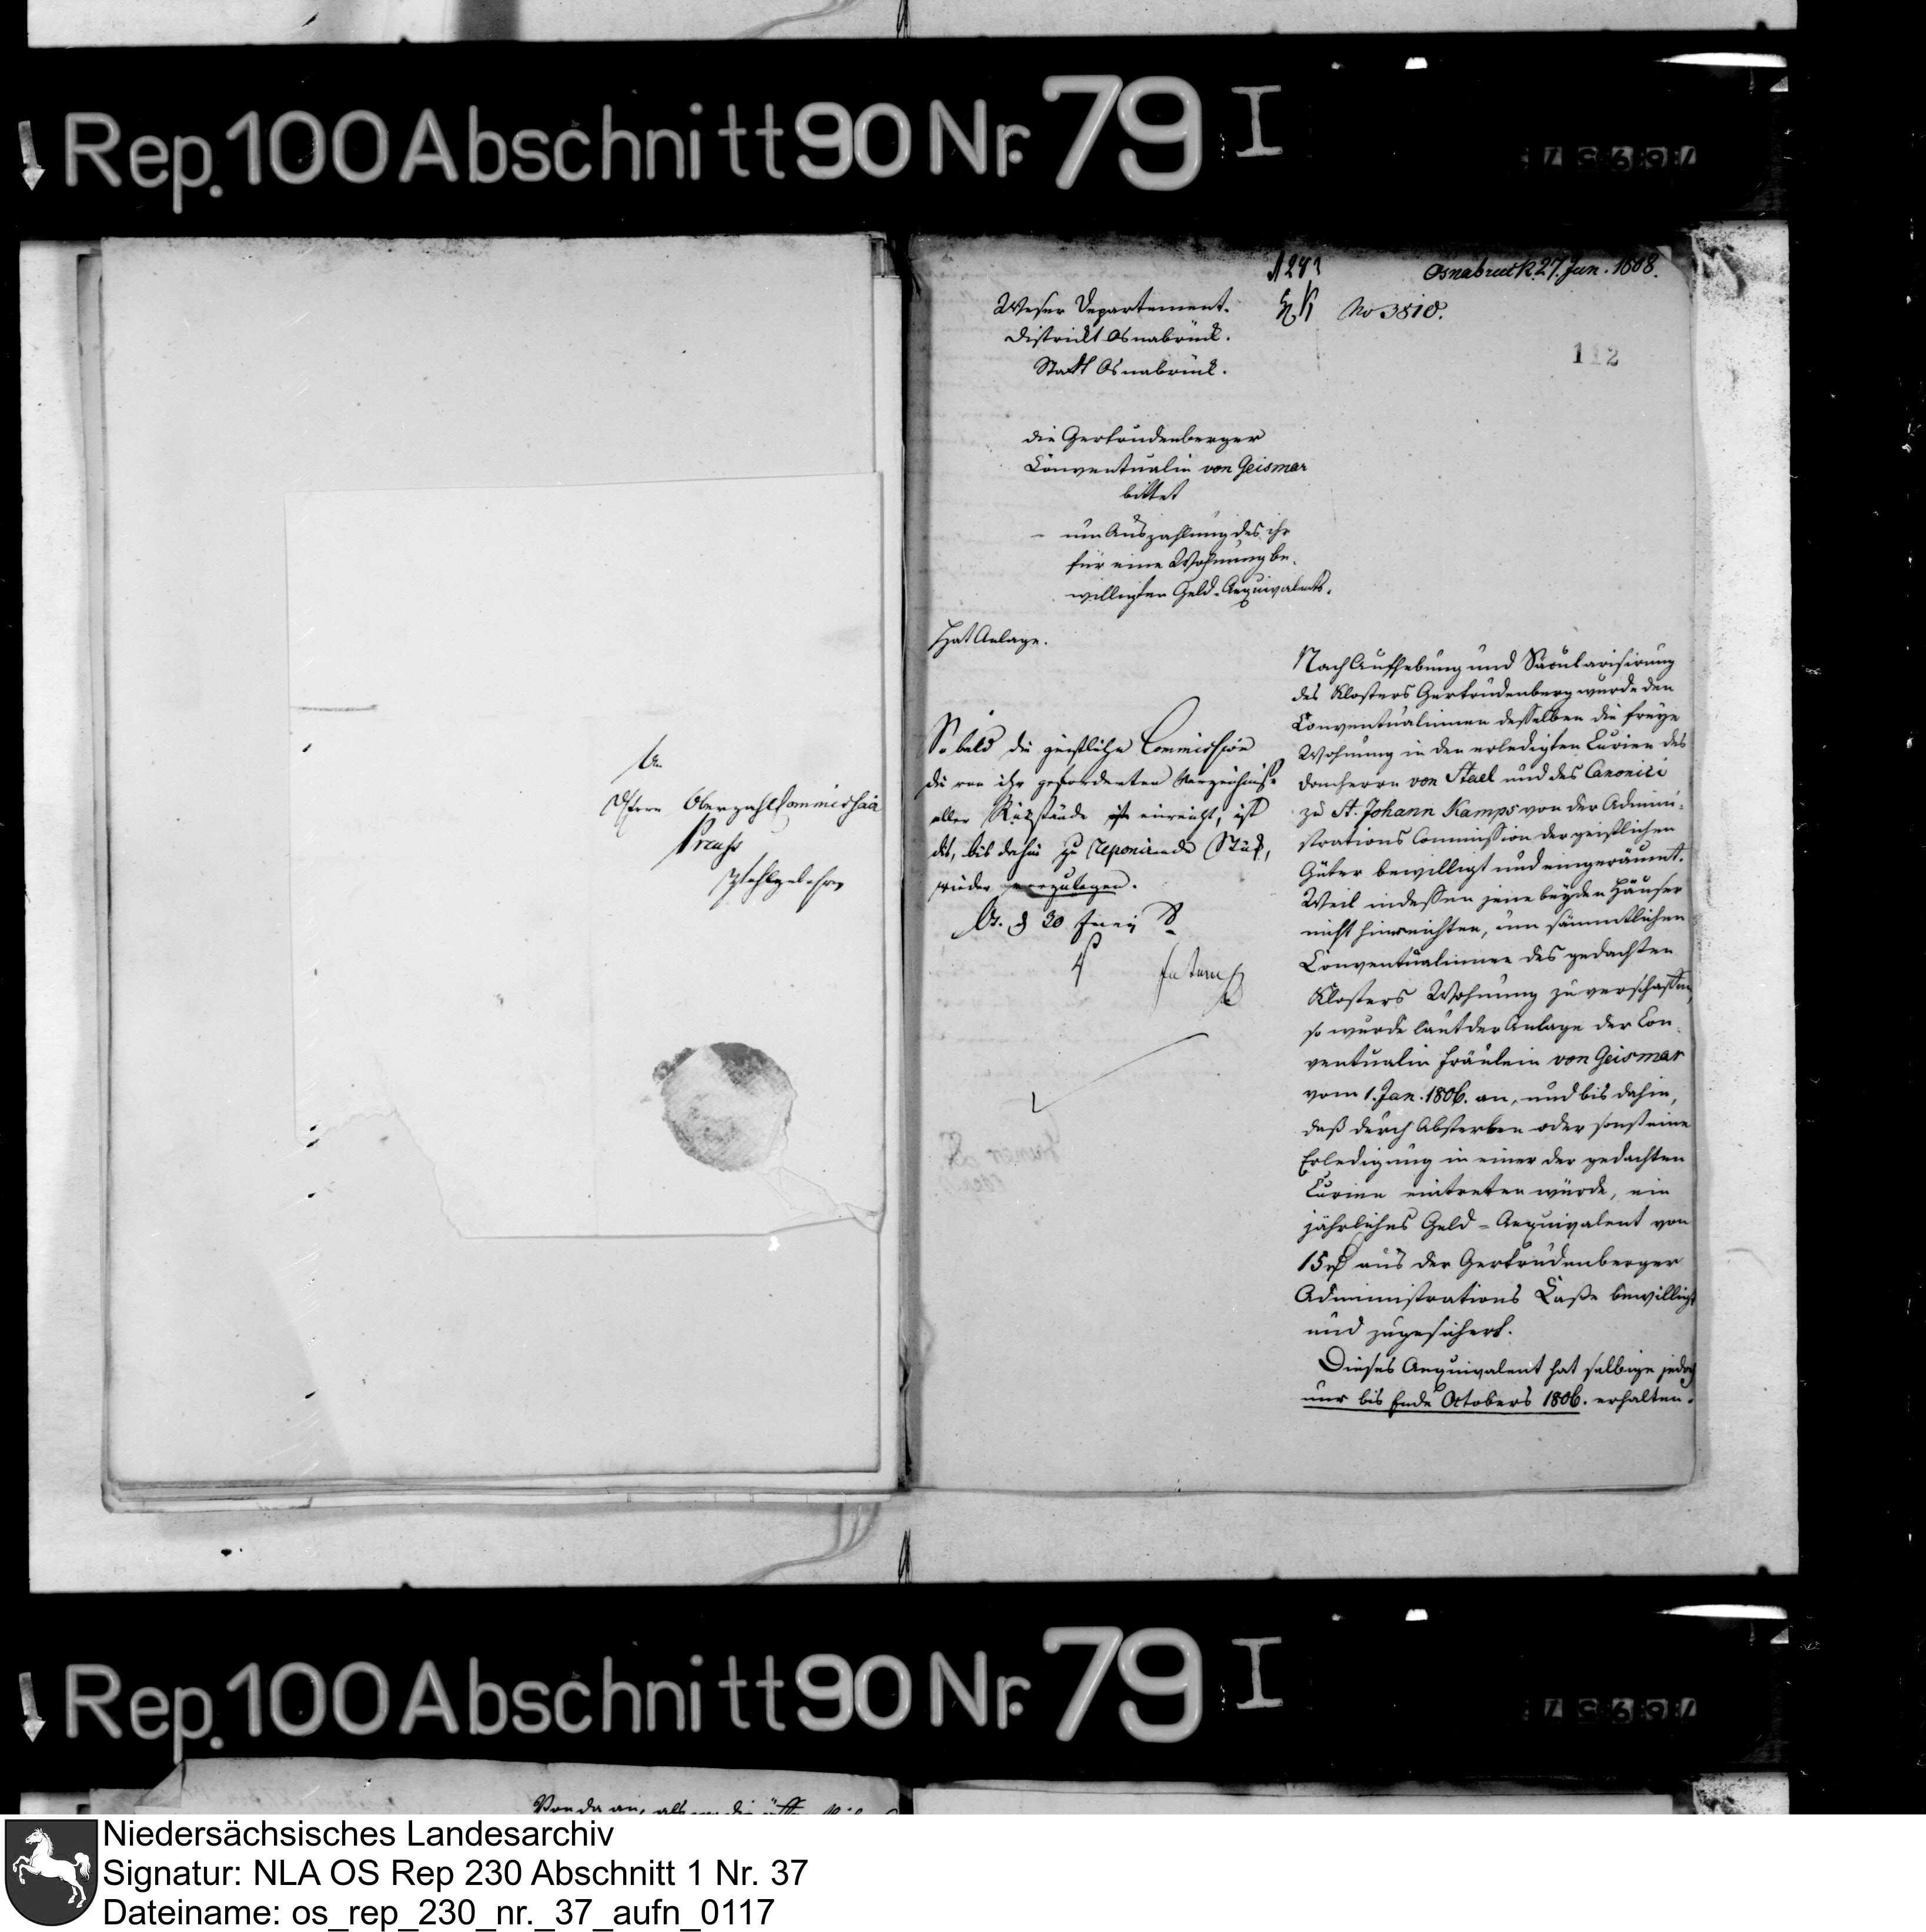 Rep. 100 Abschnitt 90 Nr. 79 I
An
Herrn Oberzahlcommissair
Preuss
Wohlgebohren
Osnabruck 27. Jun. 1808.
No 3810.
112
Weser Departement.
District Osnabrück.
Stadt Osnabrück.
die Gertrudenberger
Conventualin von Geismar
bittet
um Auszahlung des ihr
für eine Wohnung be-
willigten Geld-Aequivalents.
Hat Anlage.
So bald die geistliche Commission
die von ihr geforderten Verzeichnisse
aller Rükstände einreicht, ist
dis, bis dahin zu reponirende Stük,
wieder vorzulegen.
30 Juny
Nach Aufhebung und Säcularisirung
des Klosters Gertrudenberg wurde den
Conventualinnen desselben die freye
Wohnung in den erledigten Curien des
Domherrn von Stael und des Canonici
zu St. Johann Kamps von der Admini-
strations Commission der geistlichen
Güter bewilligt und eingeräumt.
Weil indessen jene beyden Häuser
nicht hinreichten, um sämmtlichen
Conventualinnen des gedachten
Klosters Wohnung zu verschaffen,
so wurde laut der Anlage der Con-
ventualin Fräulein von Geismar
vom 1. Jan. 1806. an, und bis dahin,
daß durch Absterben oder sonst eine
Erledigung in einer der gedachten
Curien eintreten würde, ein
jährliches Geld-Aequivalent von
15 rt aus der Gertrudenberger
Administrations Casse bewilligt
und zugesichert.
Dieses Aequivalent hat selbige jedoch
nur bis Ende Octobers 1806. erhalten.
Rep. 100 Abschnitt 90 Nr. 79 I
Von da an, als
Niedersächsisches Landesarchiv
Signatur: NLA OS Rep 230 Abschnitt 1 Nr. 37
Dateiname: os_rep_230_nr._37_aufn_0117